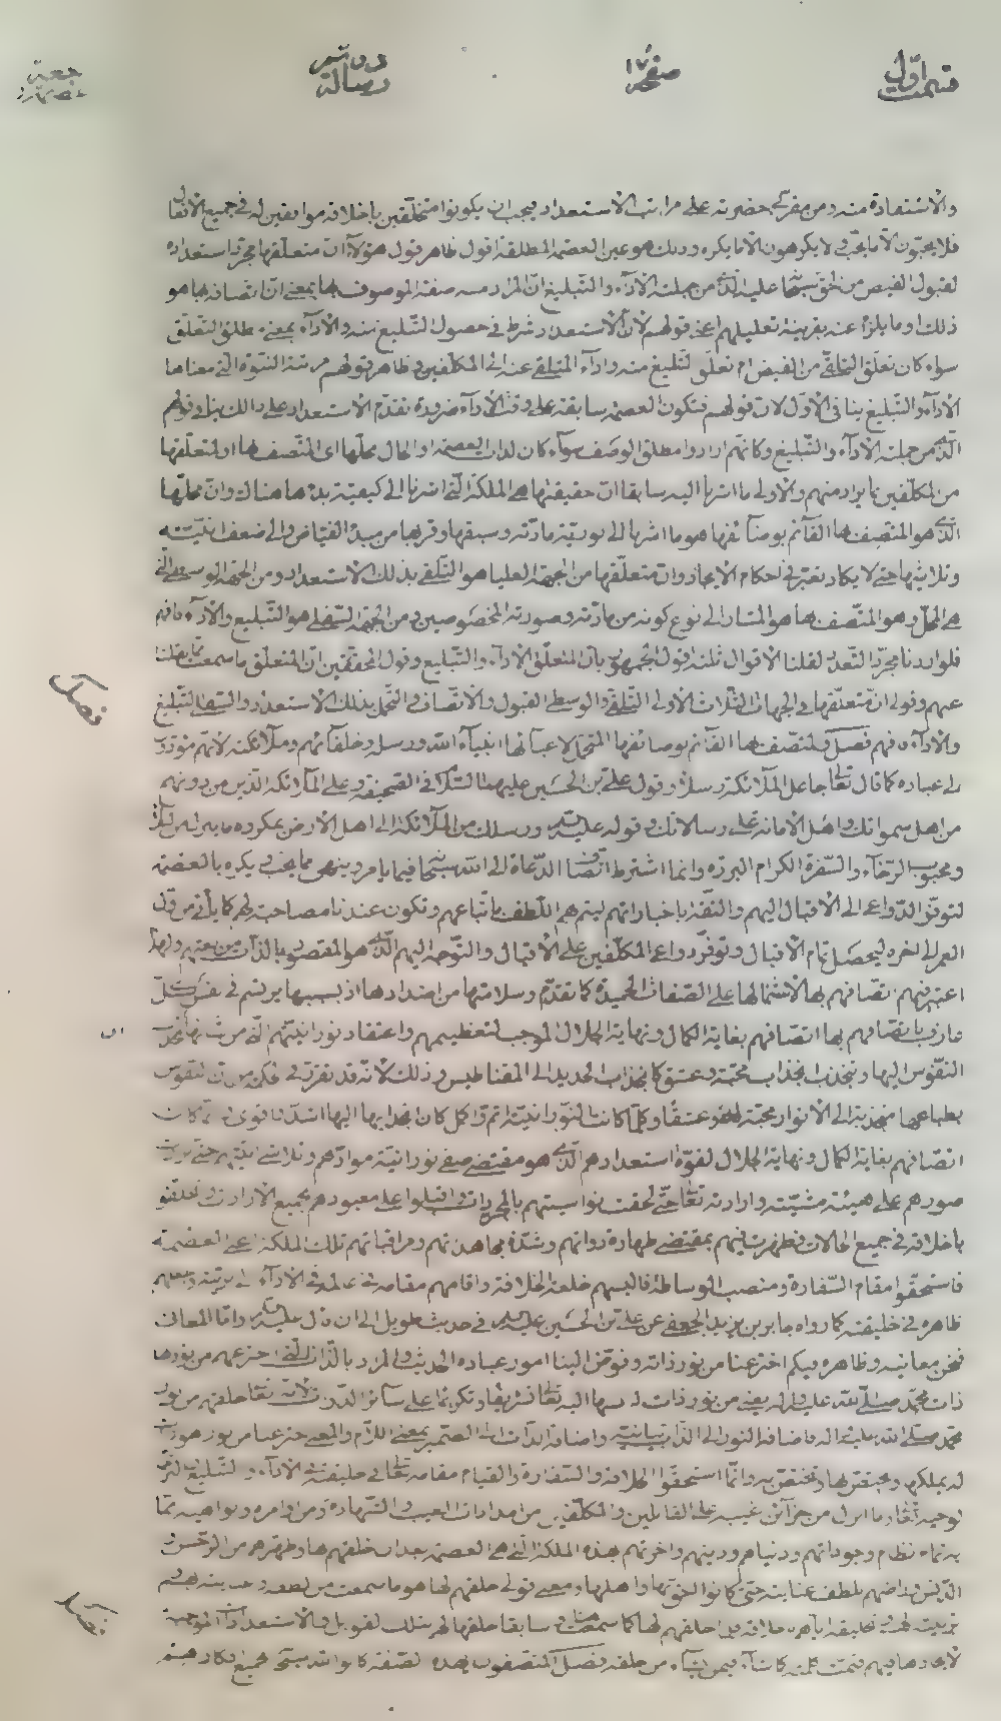 قسمت اوّل صفحه ١٧ رسالة
والاستفادة منه ومن مفركى حضرته على مراتب الاستعداد فيجب ان يكونوا متخلّقين باخلاقه موافقين له فى جميع الافعال
فلا يحبّون الّا ما يحبّ ولا يكرهون الّا ما يكره وذلك هو عين العصمة المطلقة اقول ظاهر قول هؤلاء انّ متعلّقها مجرّد استعداده
لقبول الفيض من الحق سبحانه عليه الّذى من جملته الاداء والتبليغ انّ المراد صفة الموصوف بها بمعنى انّ اتصافه بها هو
ذلك او ما يلزم عنه بقرينة تعليلهم اعنى قولهم لانّ الاستعداد شرط فى حصول التبليغ منه والاداء بمعنى مطلق التعلّق
سواء كان تعلّق التلقّى من الفيض ام تعلّق لتبليغ منه واداء المتلقّى عنه الى المكلّفين وظاهر قولهم مرتبة النبوّة الّتى معناها
الاداء والتبليغ ينافى الاوّل لان قولهم فتكون العصمة سابقة على وقت الاداء ضرورة تقدّم الاستعداد على ذلك بناء وقولهم
الّذى من جملته الاداء والتبليغ وكانّهم ارادوا مطلق الوصف سواء كان لذات العصمة او الحال محلّها اى المتّصف بها او لمتعلّقها
من المكلّفين بما يراد منهم والاولى ما اشرنا اليه سابقا انّ حقيقتها هى الملكة الّتى اشرنا الى كيفية بدءها هناك وانّ محلّها
الّذى هو المتّصف بها القائم بوصائفها هو ما اشرنا الى نوريّة مادّته وسبقها وقربها من مبدء الفيّاض والى ضعف انّيّته
وتلاشيها حتى لا يكاد تعتبر فى احكام الايجاد وان متعلّقها من الجهة العليا هو التلقّى بذلك الاستعداد ومن الجهة الوسطى الّتى
هى المحلّ وهو المتّصف بها هو المشار الى نوع كونه من مادّته وصورته المخصوصين ومن الجهة السّفلى هو التبليغ والاداء فافهم
فلو اردنا مجرّد التعدد لقلنا الاقوال ثلثة قول الجمهور بانّ المتعلّق الاداء والتبليغ وقول المحققين انّ المتعلّق ما سمعت مما نقلنا
عنهم وقولى انّ متعلّقها فى الجهات الثلاث الاولى التلقّى والوسطى القبول والاتّصاف والتحمّل بذلك الاستعداد والسّفلى التبليغ
والاداء فافهم فصل والمتصف بها القائم بوصائفها المتحمّل لاعبائها انبياء الله ورسله وخلفائهم وملائكته لانّهم مؤدّون
الى عباده كما قال تعالى جاعل الملآئكة رسلاً وقول على بن الحسين عليهما السّلام فى الصحيفة وعلى الملآئكة الّذين من دونهم
من اهل سمواتك واهل الامانة على رسالاتك وقوله عليه السلام ورسلك من الملآئكة الى اهل الارض بمكروه ما ينزل من البلاء
ومحبوب الرّخاء والسّفرة الكرام البررة وانما اشترط اتّصاف الدّعاة الى الله سبحانه فيما يامر وينهى مما يحب ويكره بالعصمة
لتوفّر الدّواعى الى الاقبال اليهم والثقة باخباراتهم ليتم هى اللّطف باتباعهم وتكون عندنا مصاحبة لهم كما ياتى من اوّل
العمر الى اخره ليحصل تمام الاقبال وتوفّر دواعى المكلّفين على الاقبال والتوجه اليهم الّذى هو المقصود بالذات من بعثهم ولهذا
اعتبر فيهم اتصافهم بها لاشتمالها على الصّفات الحميدة كما تقدّم وسلامتها من اضدادها اذ بسببها يرتسم فى نفس كلّ
عارف باتصافهم بها اتصافهم بغاية الكمال ونهاية الجلال الموجب لتعظيمهم واعتقاد نورانيّتهم الّتى من شانها تجذب
النّفوس اليها وتنجذب انجذاب محبّة وعشق كانجذاب الحديد الى المقناطيس وذلك لانّه قد تقرّر فى الحكمة ان النفوس
بطباعها منجذبة الى الانوار محبّة لها وعشقا وكلّما كانت النّورانيّة اتمّ واكمل كان انجذابها اليها اشدّ واقوى ولمّا كان
اتصافهم بغاية الكمال ونهاية الجلال لقوّة استعدادهم الّذى هو مقتضى صفى نورانيّة موادّهم وتلاشى انّيّتهم حتى برزت
صورهم على هيئة مشيّته وارادته تعالى حتى لحقت نواسيتهم بالمجردات واقبلوا على معبودهم بجميع الارادات وتخلّقوا
باخلاقه فى جميع الحالات فظهرت فيهم بمقتضى طهارة ذواتهم وشدّة مجاهدتهم ومراقباتهم تلك الملكة اعنى العصمة
فاستحقّوا مقام السّفارة ومنصب الوساطة فالبسهم خلعة الخلافة واقامهم مقامه فى عالمه فى الاداء الى بريّته وجعلهم
ظاهره فى خليقته كما رواه جابر بن يزيد الجعفى عن على بن الحسين عليه السلام فى حديث طويل الى ان قال عليه السلام وامّا المعانى
فنحن معانيه وظاهره فيكم اخترعنا من نور ذاته وفوّض الينا امور عباده الحديث والمراد بالذات الّتى اخترعهم من نورها
ذات محمّد صلى الله عليه واله يعنى من نور ذات نسبها اليه تعالى تشريفا وتكريما على سائر الذوات لانّه تعالى خلقهم من نور
محمّد صلى الله عليه واله فاضافة النور الى الذات بيانيّة واضافة الذات الى الضمير بمعنى اللّام والمعنى اخترعنا من نور هو ذات
له يملكها ويختص بها وتختصّ به وانّما استحقّوا الخلافة والسّفارة والقيام مقامه تعالى فى خليقته فى الاداء والتبليغ
لوحيه تعالى وما انزل من خزآئن غيبه على القابلين والمكلّفين من امدادات الغيب والشّهادة ومن اوامره ونواهيه ممّا
به تمام نظام وجوداتهم ودنياهم ودينهم واخرتهم بهذه الملكة الّتى هى العصمة بعد ان خلقهم لها وطهّرهم من الرّجس
بلطف عنايته حتى كانوا احق بها واهلها ومعنى قولى خلقهم لها هو ما سمعت من
خلقهم لها كما سمعت سابقا خلقها لهم بتلك القوابل والاستعدادات الموجبة
لايجادها فيهم فتمت كلمته كما شاء فيمن يشاء من خلقه فصل المتصفون بهذه الصّفة كانوا الله سبحانه
فصل
فصل